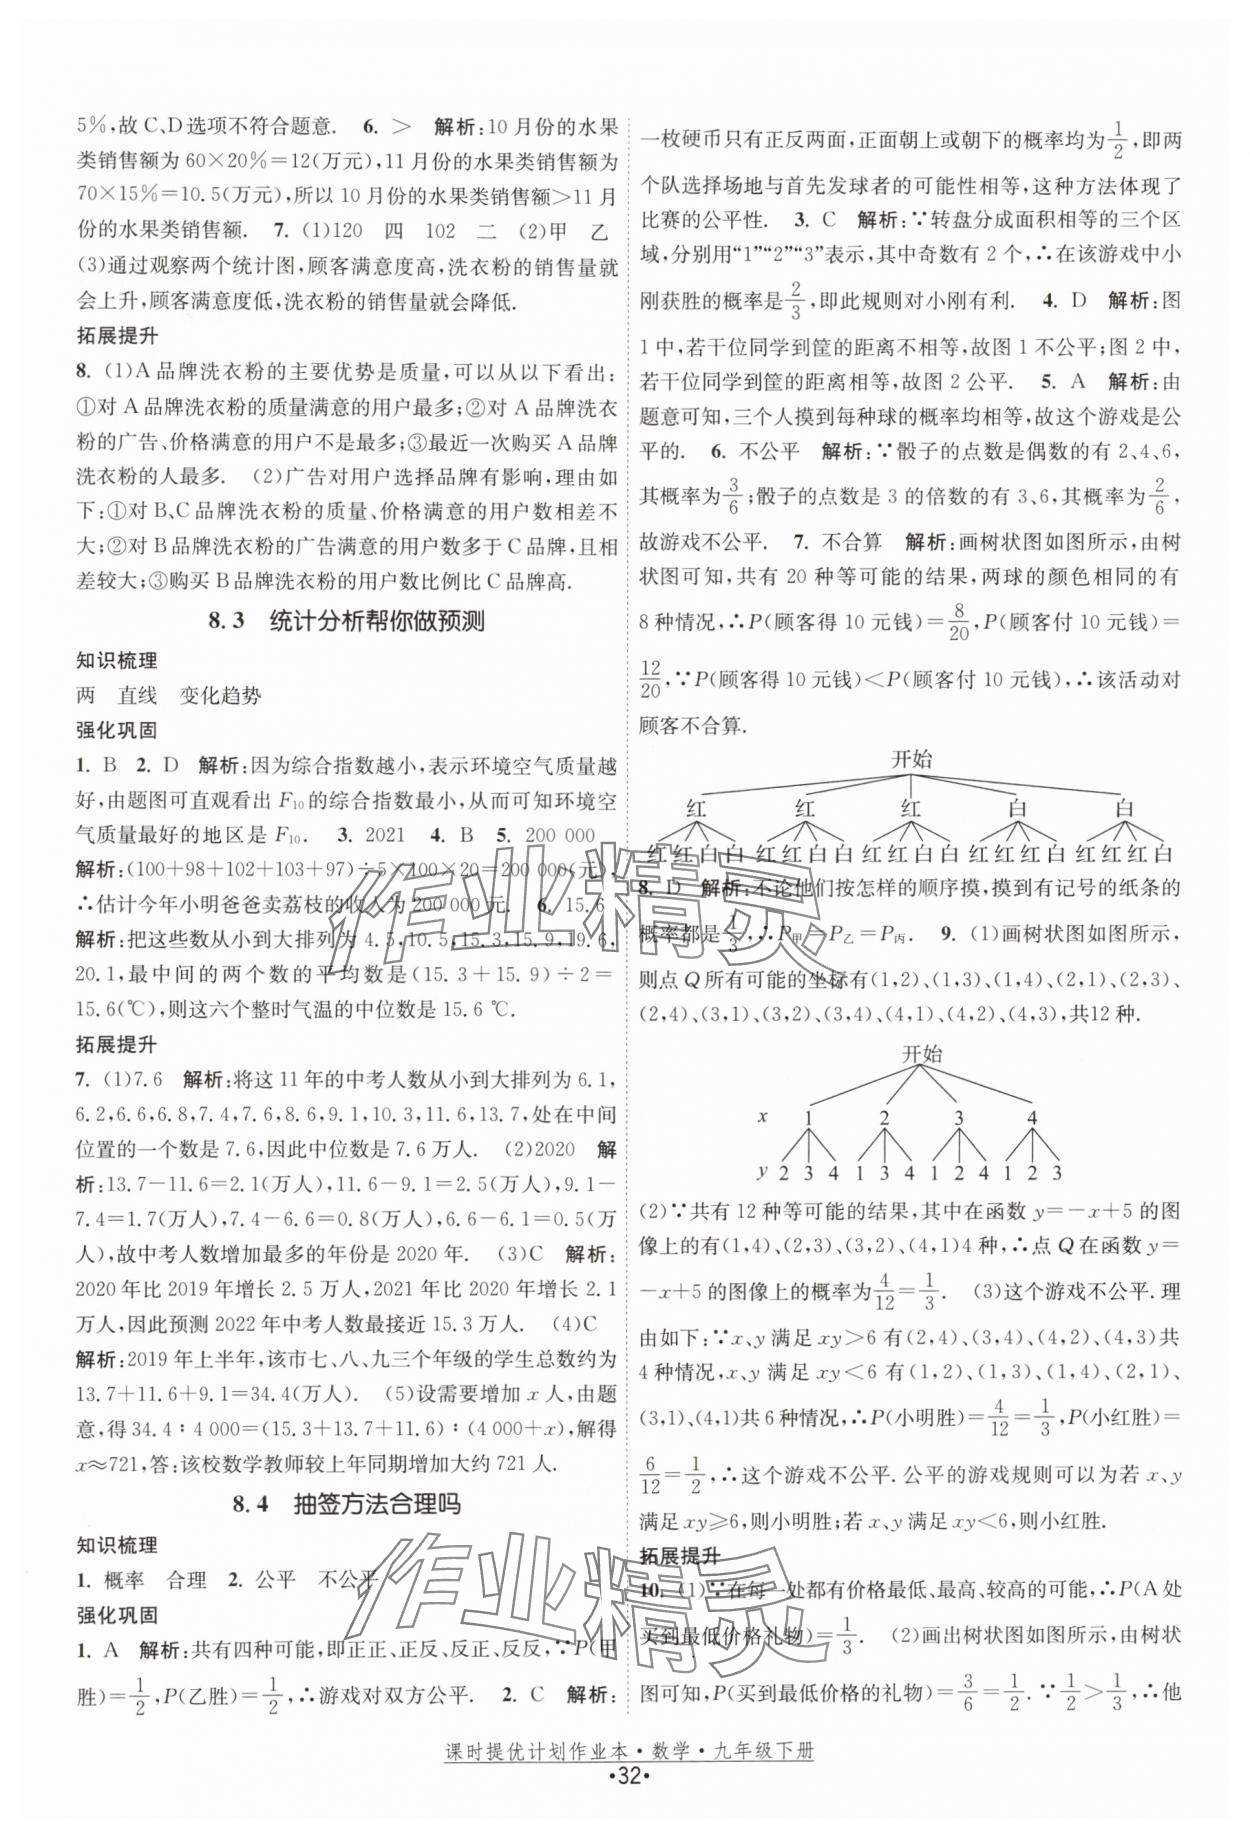 5％,故C、D选项不符合题意. 6. ＞ 解析:10月份的水果
类销售额为60×20％=12(万元),11月份的水果类销售额为
70×15％=10.5(万元),所以10月份的水果类销售额＞11月
份的水果类销售额. 7. (1)120 四 102 二 (2)甲 乙
(3)通过观察两个统计图,顾客满意度高,洗衣粉的销售量就
会上升,顾客满意度低,洗衣粉的销售量就会降低.
拓展提升
8. (1)A品牌洗衣粉的主要优势是质量,可以从以下看出:
①对A品牌洗衣粉的质量满意的用户最多;②对A品牌洗衣
粉的广告、价格满意的用户不是最多;③最近一次购买A品牌
洗衣粉的人最多. (2)广告对用户选择品牌有影响,理由如
下:①对B、C品牌洗衣粉的质量、价格满意的用户数相差不
大;②对B品牌洗衣粉的广告满意的用户数多于C品牌,且相
差较大;③购买B品牌洗衣粉的用户数比例比C品牌高.
8.3 统计分析帮你做预测
知识梳理
两 直线 变化趋势
强化巩固
1. B 2. D 解析:因为综合指数越小,表示环境空气质量越
好,由题图可直观看出F₁₀的综合指数最小,从而可知环境空
气质量最好的地区是F₁₀. 3. 2021 4. B 5. 200 000
解析:(100+98+102+103+97)÷5×100×20=200 000(元),
∴估计今年小明爸爸卖荔枝的收入为200 000元. 6. 15.6
解析:把这些数从小到大排列为4.5,10.5,15.3,15.9,19.6,
20.1,最中间的两个数的平均数是(15.3+15.9)÷2=
15.6(℃),则这六个整时气温的中位数是15.6℃.
拓展提升
7. (1)7.6 解析:将这11年的中考人数从小到大排列为6.1,
6.2,6.6,6.8,7.4,7.6,8.6,9.1,10.3,11.6,13.7,处在中间
位置的一个数是7.6,因此中位数是7.6万人. (2)2020 解
析:13.7-11.6=2.1(万人),11.6-9.1=2.5(万人),9.1-
7.4=1.7(万人),7.4-6.6=0.8(万人),6.6-6.1=0.5(万
人),故中考人数增加最多的年份是2020年. (3)C 解析:
2020年比2019年增长2.5万人,2021年比2020年增长2.1
万人,因此预测2022年中考人数最接近15.3万人. (4)C
解析:2019年上半年,该市七、八、九三个年级的学生总数约为
13.7+11.6+9.1=34.4(万人). (5)设需要增加x人,由题
意,得34.4∶4 000=(15.3+13.7+11.6)∶(4 000+x),解得
x≈721,答:该校数学教师较上年同期增加大约721人.
8.4 抽签方法合理吗
知识梳理
1. 概率 合理 2. 公平 不公平
强化巩固
1. A 解析:共有四种可能,即正正、正反、反正、反反,∵P(甲
胜)=1/2,P(乙胜)=1/2,∴游戏对双方公平. 2. C 解析:
一枚硬币只有正反两面,正面朝上或朝下的概率均为1/2,即两
个队选择场地与首先发球者的可能性相等,这种方法体现了
比赛的公平性. 3. C 解析:∵转盘分成面积相等的三个区
域,分别用“1”“2”“3”表示,其中奇数有2个,∴在该游戏中小
刚获胜的概率是2/3,即此规则对小刚有利. 4. D 解析:图
1中,若干位同学到筐的距离不相等,故图1不公平;图2中,
若干位同学到筐的距离相等,故图2公平. 5. A 解析:由
题意可知,三个人摸到每种球的概率均相等,故这个游戏是公
平的. 6. 不公平 解析:∵骰子的点数是偶数的有2、4、6,
其概率为3/6;骰子的点数是3的倍数的有3、6,其概率为2/6,
故游戏不公平. 7. 不合算 解析:画树状图如图所示,由树
状图可知,共有20种等可能的结果,两球的颜色相同的有
8种情况,∴P(顾客得10元钱)=8/20,P(顾客付10元钱)=
12/20,∵P(顾客得10元钱)＜P(顾客付10元钱),∴该活动对
顾客不合算.
开始
红 红 红 白 白
红红白白 红红白白 红红白白 红红红白 红红红白
8. D 解析:不论他们按怎样的顺序摸,摸到有记号的纸条的
概率都是1/3,∴P甲=P乙=P丙. 9. (1)画树状图如图所示,
则点Q所有可能的坐标有(1,2)、(1,3)、(1,4)、(2,1)、(2,3)、
(2,4)、(3,1)、(3,2)、(3,4)、(4,1)、(4,2)、(4,3),共12种.
开始
x 1 2 3 4
y 2 3 4 1 3 4 1 2 4 1 2 3
(2)∵共有12种等可能的结果,其中在函数y=-x+5的图
像上的有(1,4)、(2,3)、(3,2)、(4,1)4种,∴点Q在函数y=
-x+5的图像上的概率为4/12=1/3. (3)这个游戏不公平.理
由如下:∵x、y满足xy＞6有(2,4)、(3,4)、(4,2)、(4,3)共
4种情况,x、y满足xy＜6有(1,2)、(1,3)、(1,4)、(2,1)、
(3,1)、(4,1)共6种情况,∴P(小明胜)=4/12=1/3,P(小红胜)=
6/12=1/2,∴这个游戏不公平.公平的游戏规则可以为若x、y
满足xy≥6,则小明胜;若x、y满足xy＜6,则小红胜.
拓展提升
10. (1)∵在每一处都有价格最低、最高、较高的可能,∴P(A处
买到最低价格礼物)=1/3. (2)画出树状图如图所示,由树状
图可知,P(买到最低价格的礼物)=3/6=1/2.∵1/2＞1/3,∴他
课时提优计划作业本·数学·九年级下册
·32·
作业精灵
作业精灵